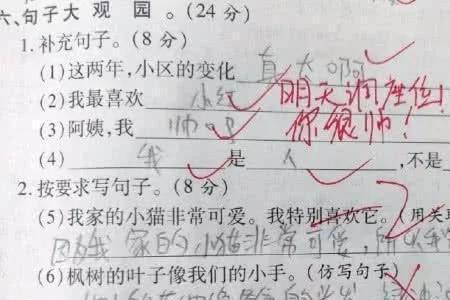 六、句子大观园。(24分)
1.补充句子。(8分)
(1)这两年,小区的变化真大啊
(2)我最喜欢小红
明天调座位!
(3)阿姨,我帅吗
你很帅!
(4)我是人,不是
2.按要求写句子。(8分)
(5)我家的小猫非常可爱。我特别喜欢它。(用关
因为我家的小猫非常可爱,所以我
(6)枫树的叶子像我们的小手。(仿写句子)